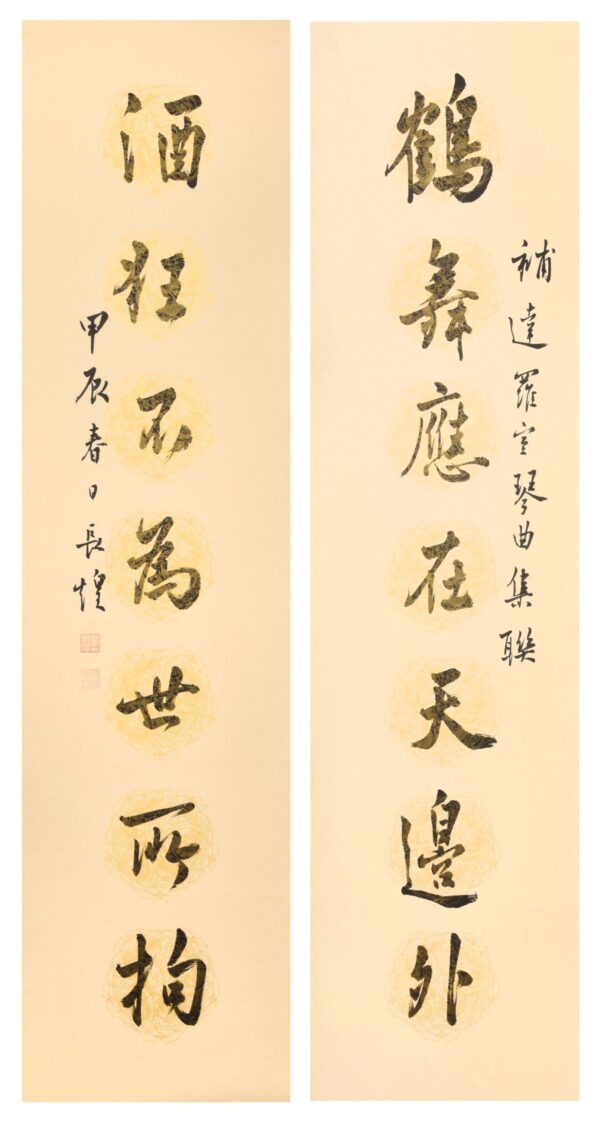 補達羅室琴曲集聯
鶴舞應在天邊外
酒狂不為世所拘
甲辰春日長煌